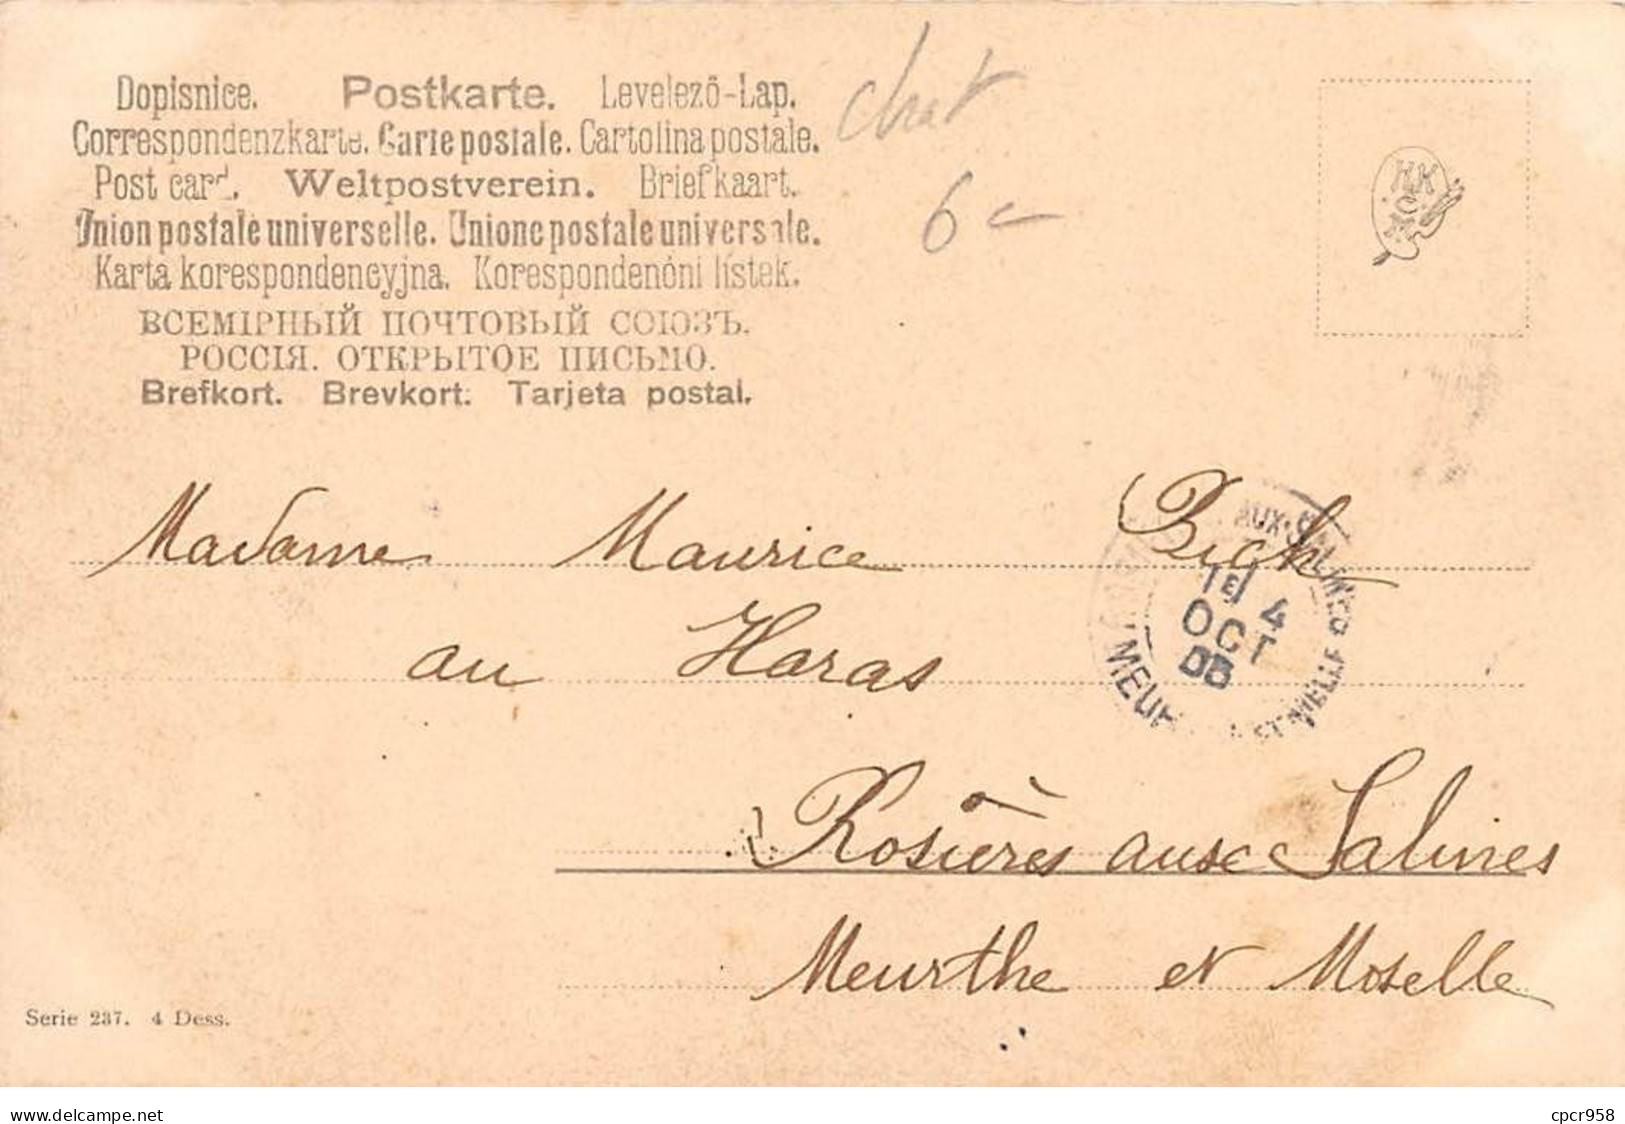 Dopisnice. Postkarte. Levelező-Lap.
Correspondenzkarte. Carte postale. Cartolina postale.
Post card. Weltpostverein. Briefkaart.
Union postale universelle. Unione postale universale.
Karta korespondencyjna. Korespondenóni lístek.
ВСЕМІРНЫЙ ПОЧТОВЫЙ СОЮЗЪ.
РОССІЯ. ОТКРЫТОЕ ПИСЬМО.
Brefkort. Brevkort. Tarjeta postal.
chat
6 c
Madame Maurice Bich
au Haras
Rosières aux Salines
Meurthe et Moselle
4
OCT
Serie 237. 4 Dess.
delcampe.net
cpcr958